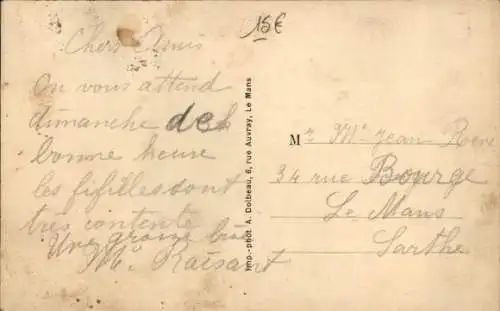 15€
Chers Amis
On vous attend
dimanche de
bonne heure
les fifilles sont
très contente
Une grosse bise
Me Raisant
Imp.-phot. A. Dolbeau, 6, rue Auvray, Le Mans
Mr Me Jean René
34 rue Bourge
Le Mans
Sarthe